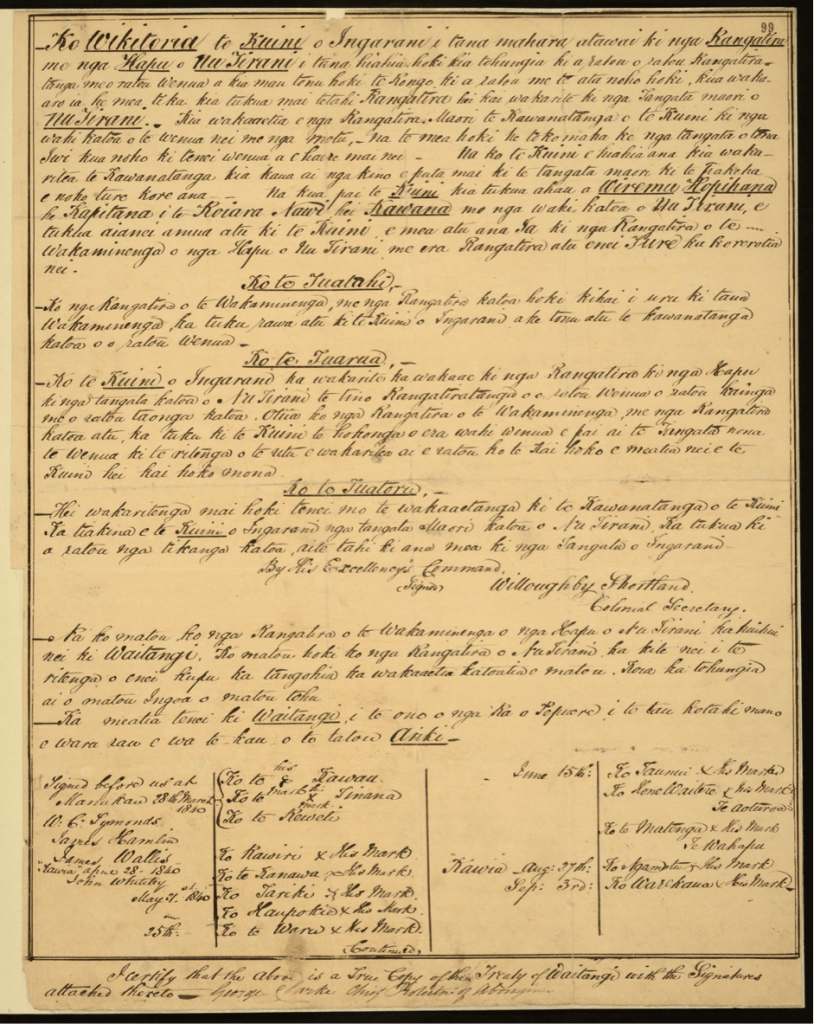 99
Ko Wikitoria te Kuini o Ingarani i tana mahara atawai ki nga Rangatira
me nga Hapu o Nu Tirani i tana hiahia hoki kia tohungia ki a ratou o ratou Rangatira-
tanga me o ratou wenua a kia mau tonu hoki te Rongo ki a ratou me te ata noho hoki, kua waka-
aro ia he mea tika kia tukua mai tetahi Rangatira hei kai wakarite ki nga Tangata maori o
Nu Tirani. - Kia wakaaetia e nga Rangatira Maori te Kawanatanga o te Kuini ki nga
wahi katoa o te wenua nei me nga motu, - na te mea hoki he tokomaha ke nga tangata o tona
Iwi kua noho ki tenei wenua a e haere mai nei - Na ko te Kuini e hiahia ana kia waka-
ritea te Kawanatanga kia kaua ai nga kino e puta mai ki te tangata maori ki te Pakeha
e noho ture kore ana - Na kua pai te Kuini kia tukua ahau a Wiremu Hopihana
he Kapitana i te Roiara Nawi hei Kawana mo nga wahi katoa o Nu Tirani, e
tukua aianei amua atu ki te Kuini, e mea atu ana Ia ki nga Rangatira o te
Wakaminenga o nga Hapu o Nu Tirani me era Rangatira atu enei Ture ka korerotia
nei. -
Ko te Tuatahi, -
Ko nga Rangatira o te Wakaminenga, me nga Rangatira katoa hoki kihai i uru ki taua
Wakaminenga, ka tuku rawa atu ki te Kuini o Ingarani ake tonu atu te kawanatanga
katoa o o ratou wenua -
Ko te Tuarua, -
- Ko te Kuini o Ingarani ka wakarite ka wakaae ki nga Rangatira ki nga Hapu
ki nga tangata katoa o Nu Tirani te tino Rangatiratanga o o ratou wenua o ratou kainga
me o ratou taonga katoa. Otiia ko nga Rangatira o te Wakaminenga, me nga Rangatira
katoa atu, ka tuku ki te Kuini te hokonga o era wahi wenua e pai ai te Tangata nona
te wenua ki te ritenga o te utu e wakaritea ai e ratou ko te Kai hoko e meatia nei e te
Kuini hei kai hoko mona
Ko te Tuatoru, -
- Hei wakaritenga mai hoki tenei mo te wakaaetanga ki te Kawanatanga o te Kuini
Ka tiakina e te Kuini o Ingarani nga tangata Maori katoa o Nu Tirani. Ka tukua ki
a ratou nga tikanga katoa, aite tahi ki ana mea ki nga Tangata o Ingarani
By His Excellency's Command.
Signed, Willoughby Shortland
Colonial Secretary.
- Na ko matou ko nga Rangatira o te Wakaminenga o nga Hapu o Nu Tirani ka huihui
nei ki Waitangi. Ko matou hoki ko nga Rangatira o Nu Tirani ka kite nei i te
ritenga o enei kupu ka tangohia ka wakaaetia katoatia e matou. Koia ka tohungia
ai o matou Ingoa o matou tohu
- Ka meatia tenei ki Waitangi, i te ono o nga Ra o Pepuere, i te tau kotahi mano
e waru rau e wa te kau, o to tatou Ariki -
Signed before us at
Manukau 28th March
1840
W. C. Symonds
James Hamlin
James Wallis
Kawia april 28. 1840
John Whiteley
May 21st 1840
25th -
Ko te his Kawau
Ko te mark x Tinana
Ko te Reweti
Ko Rawiri x His Mark
Ko te Kanawa x His Mark
Ko Tariki x His Mark.
Ko Haupokia x His Mark.
Ko te Waru x His Mark
Continued,
June 15th:
Kawia - Aug: 27th:
Sep: 3rd:
Ko Taunui x His Mark
Ko Hone Waitere x his Mark
Te Aoturoa
Ko te Matenga x His Mark
Te Wahapu
Ko Ngamotu x His Mark
Ko Warekaua x His Mark
I certify that the above is a True Copy of the Treaty of Waitangi with the Signatures
attached thereto - George Clarke Chief Protector of Aborigines